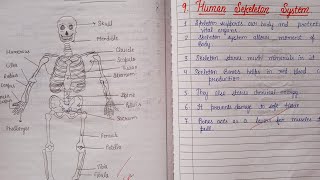 Skull
Mandible
Clavicle
Scapula
Humerus
Sternum
Ulna
Radius
Carpus
Spine
Pelvis
Sacrum
Phallanges
Femur
Patella
Tibia
Fibula
9. Human Skeleton System
1 Skeleton supports our body and protects
vital organs
2 Skeleton system allows movement of
Body
3 Skeleton stores minerals in it
4 Skeleton Bones helps in red blood
production
5 They also stores chemical energy
6 It prevents damage to soft tissue
7 Bones acts as a lever for muscles to
pull